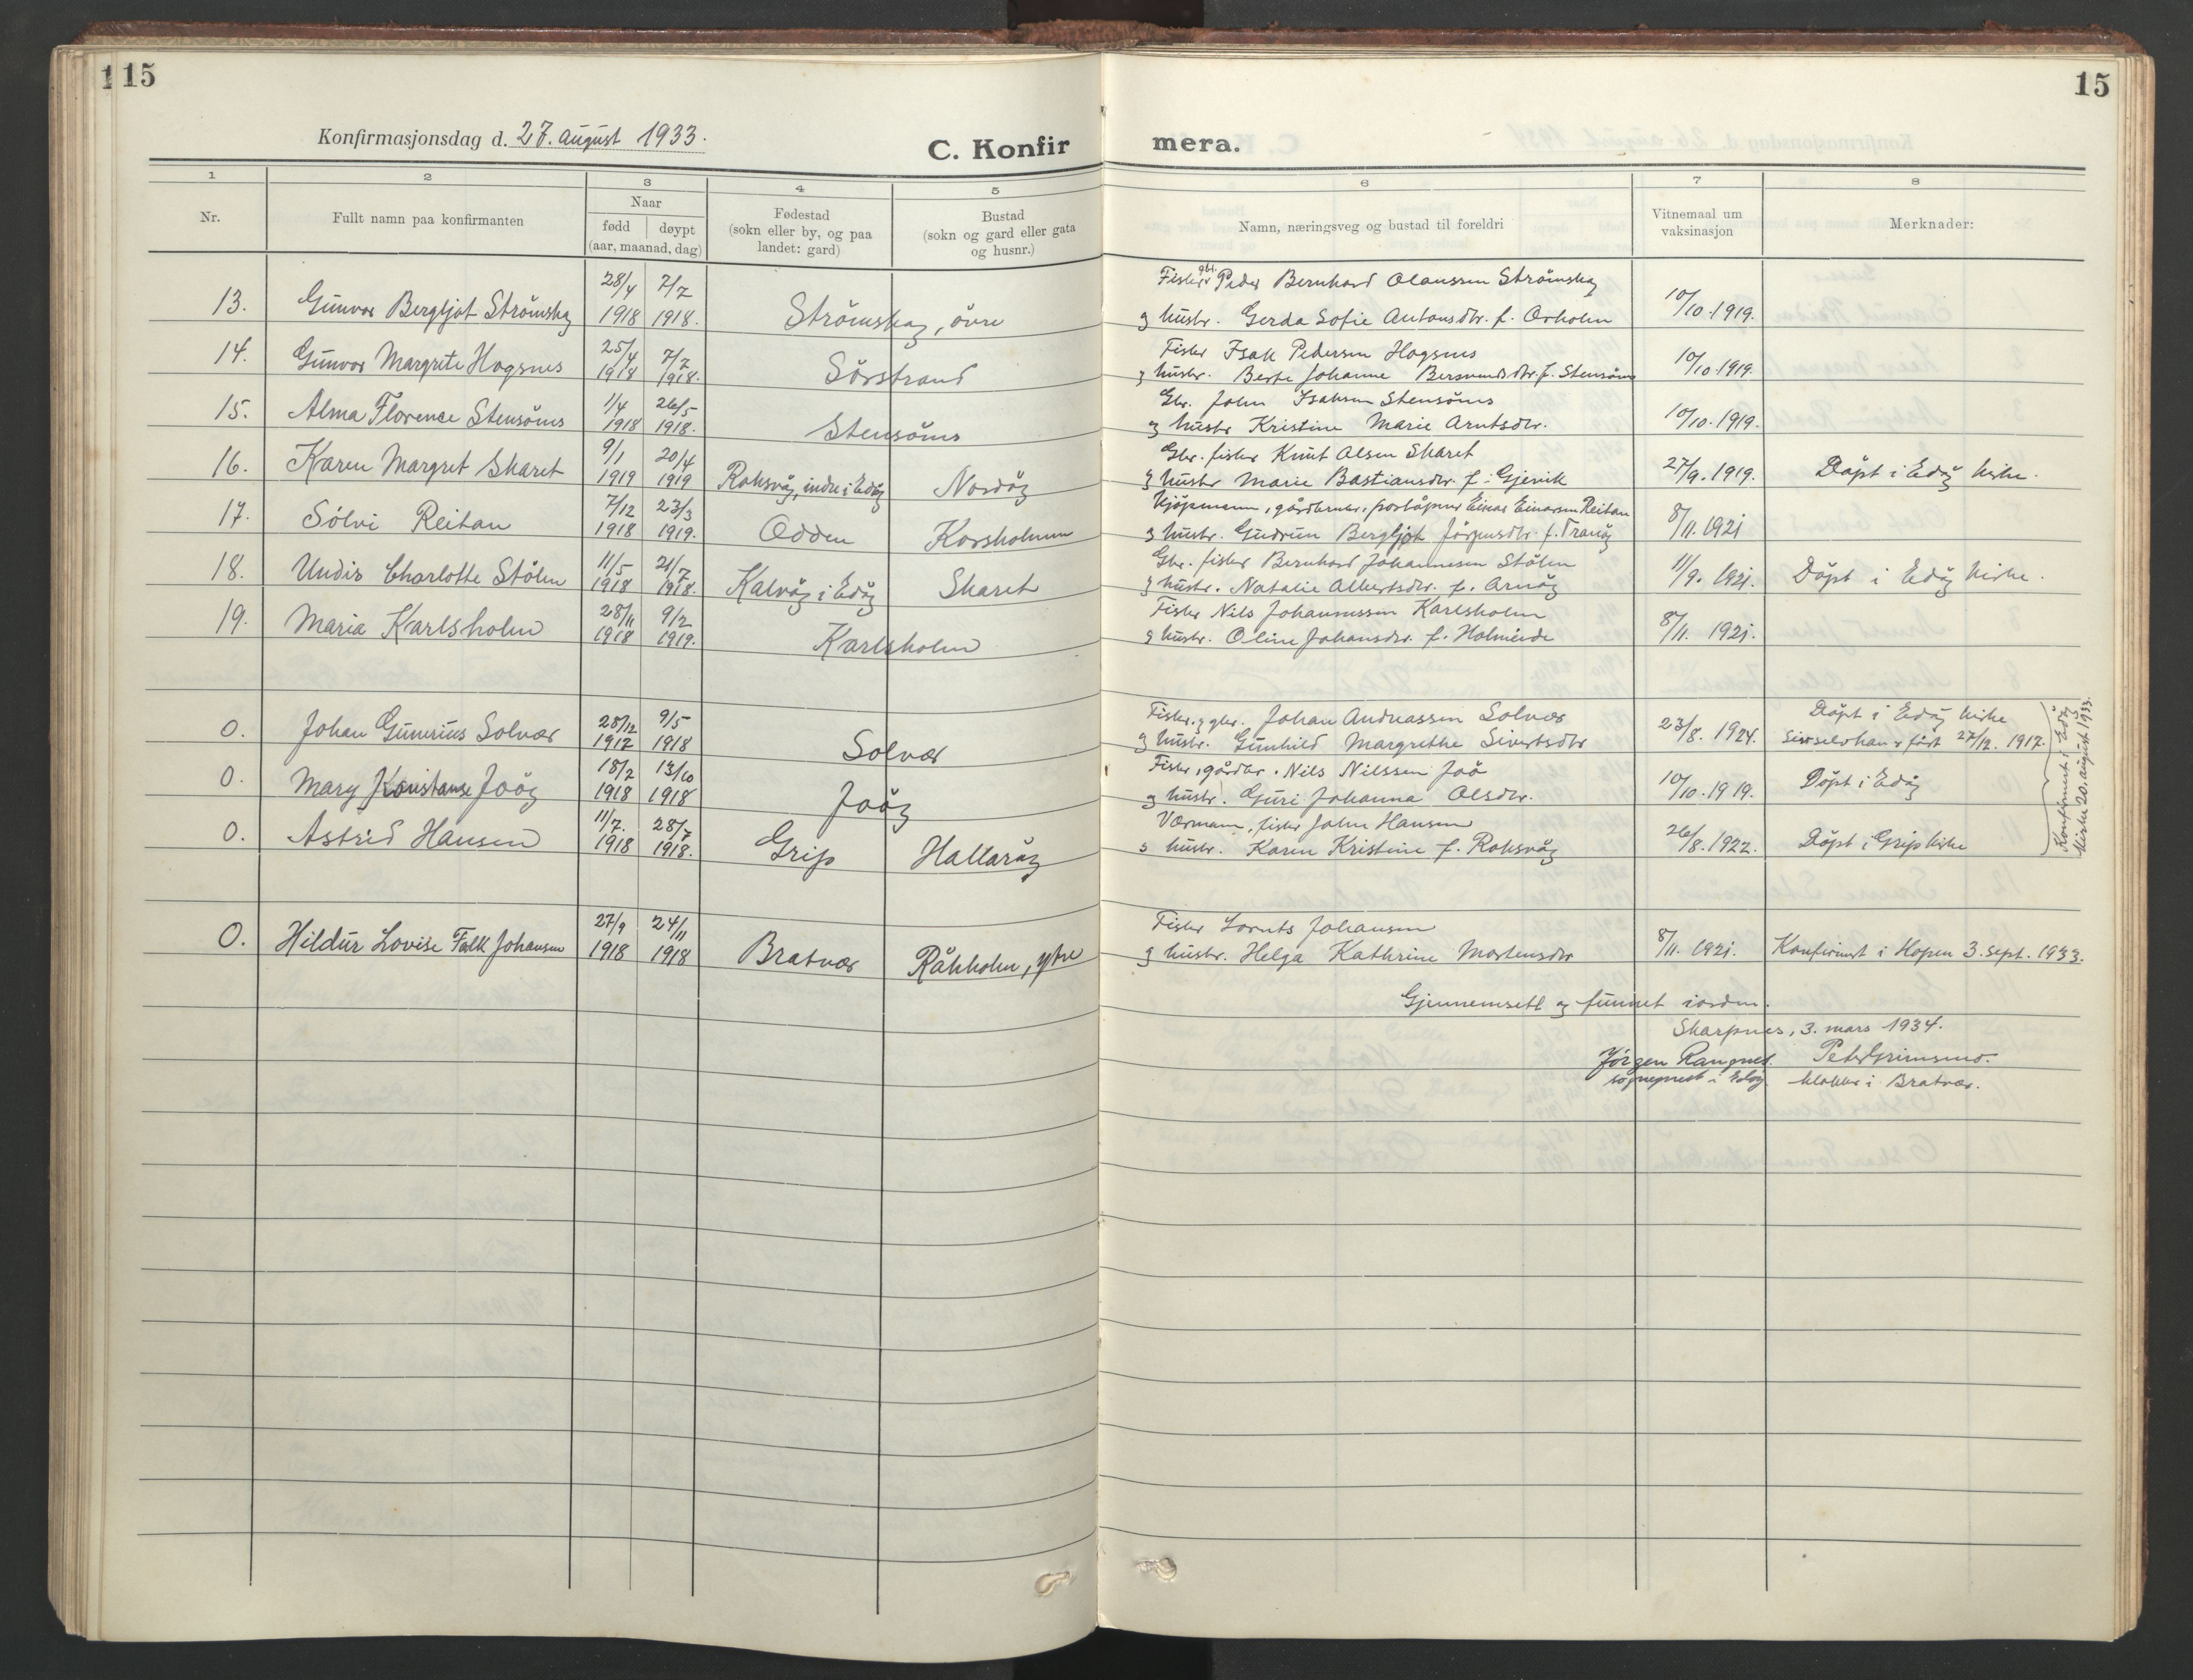 115
15
Konfirmasjonsdag d. 27. august 1933.
C. Konfir mera.
1 2 3 4 5 6 7 8
Nr.
Fullt namn paa konfirmanten
Naar
fødd døypt
(aar, maanad, dag)
Fødestad
(sokn eller by, og paa
landet: gard)
Bustad
(sokn og gard eller gata
og husnr.)
Namn, næringsveg og bustad til foreldri
Vitnemaal um
vaksinasjon
Merknader:
13. Gunvor Bergljot Strömskag 28/4 1918 7/7 1918. Strömskag, övre
Fisker gbr. Peder Bernhard Olaussen Strömskag
og hustr. Gerda Sofie Antonsdtr. f. Orholm 10/10.1919.
14. Gunvor Margrete Hogsnes 25/4 1918 7/7 1918. Sörstrand
Fisker Isak Pedersen Hogsnes
og hustr. Berte Johanne Bersvendsdtr. f. Stensönes 10/10.1919.
15. Alma Florence Stensönes 1/4 1918 26/5 1918. Stensönes
Gbr. John Isaksen Stensönes
og hustr Kristine Marie Arntsdtr. 10/10.1919.
16. Karen Margret Skaret 9/1 1919 20/4 1919 Roksvåg, indre i Edøy Nordøy
Gbr. fisker Knut Olsen Skaret
og hustr Marie Bastiansdtr. f. Gjevik 27/9.1919. Döpt i Edøy kirke.
17. Sölvi Reitan 7/12 1918 23/3 1919. Odden Korsholmen
Kjöpmann, gårdbruker, poståpner Einar Einarsen Reitan
og hustr. Gudrun Bergljot Jörgensdtr. f. Tranøy 8/11.1921
18. Undis Charlotte Stölen 11/5 1918 21/7 1918. Kalvåg i Edøy Skaret
Gbr. fisker Bernhard Johannesen Stölen
og hustr. Natalie Albertsdtr. f. Arnøy 11/9.1921. Döpt i Edøy kirke.
19. Maria Karlsholm 28/11 1918 9/2 1919. Karlsholm
Fisker Nils Johannessen Karlsholm
og hustr. Oline Johansdtr. f. Holmeide 8/11.1921.
0. Johan Gunerius Solvær 28/12 1917 9/5 1918 Solvær
Fisker og gbr. Johan Andreassen Solvær
og hustr. Gunhild Margrethe Sivertsdtr 23/8.1924. Döpt i Edøy kirke
Sier selv han er født 27/12. 1917.
0. Mary Konstanse Joøy 18/2 1918 13/10 1918 Joøy
Fisker, gårdbr. Nils Nilssen Joö
og hustr. Guri Johanna Olsdtr. 10/10.1919. Döpt i Edøy
0. Astrid Hansen 11/7. 1918 28/7 1918. Grip Hallarøy
Værmann, fisker John Hansen
og hustr. Karen Kristine f. Roksvåg 26/8.1922. Döpt i Grip kirke
Konfirmert i Edøy
kirke 20. august 1933.
0. Hildur Lovise Falk Johansen 27/9 1918 24/11 1918 Bratvær Råkholm, ytre
Fisker Lorents Johansen
og hustr. Helga Kathrine Mortensdtr 8/11.1921. Konfirmert i Hopen 3. sept. 1933.
Gjennemsett og funnet i orden.
Skarpnes, 3. mars 1934.
Jörgen Rangnes. Peter Grimsmo.
sogneprest i Edøy klokker i Bratvær.